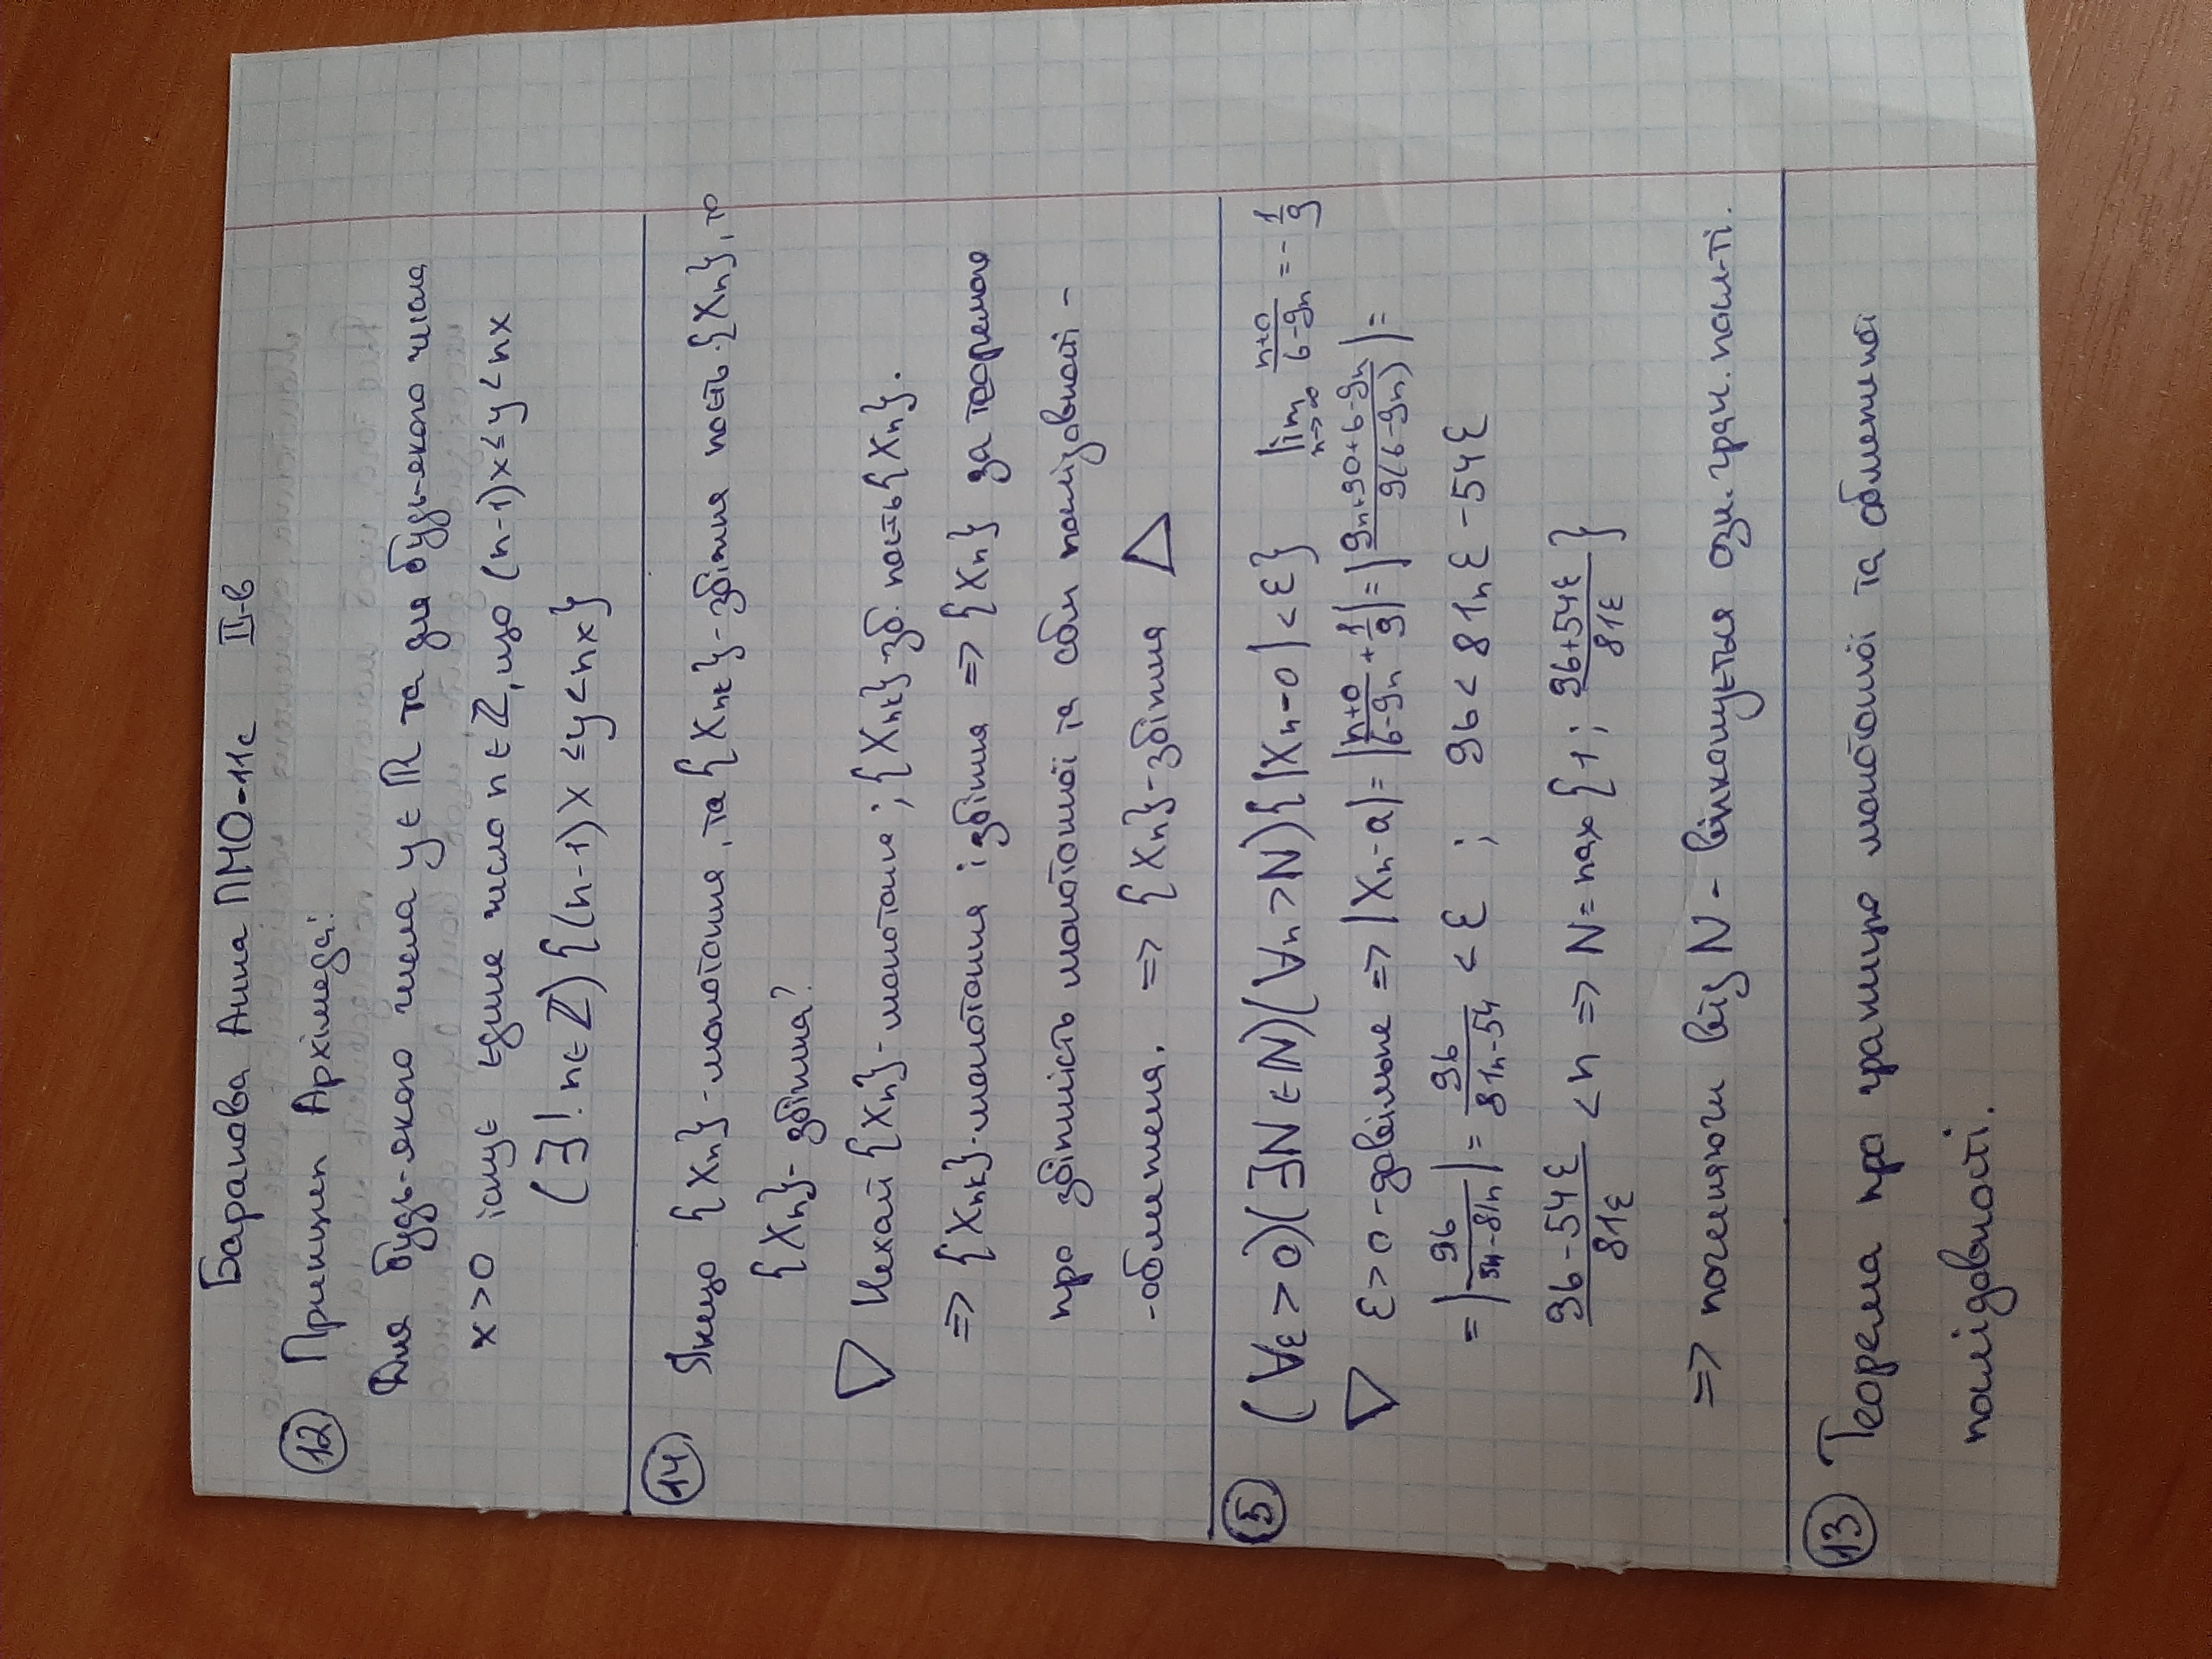 Баранова Анна ПМО-11с II-в
12 Принцип Архімеда:
Для будь-якого числа y ∈ ℝ та для будь-якого числа
x > 0 існує єдине число n ∈ ℤ, що (n-1)x ≤ y < nx
(∃! n ∈ ℤ) {(n-1)x ≤ y < nx}
14 Якщо {Xn} - монотонна, та {Xnk} - збіжна пость {Xn}, то
{Xn} - збіжна?
▽ Нехай {Xn} - монотонна; {Xnk} - зб. пость {Xn}.
=> {Xnk} - монотонна і збіжна => {Xn} за теоремою
про збіжність монотонної та обм послідовності -
- обмежена. => {Xn} - збіжна △
5 (∀ε > 0)(∃N ∈ ℕ)(∀n > N){|Xn - a| < ε} lim n→∞ (n+0)/(6-9n) = -1/9
▽ ε > 0 - довільне => |Xn - a| = |(n+0)/(6-9n) + 1/9| = |(9n+90+6-9n)/(9(6-9n))| =
= |96/(54-81n)| = 96/(81n-54) < ε ; 96 < 81nε - 54ε
(96-54ε)/(81ε) < n => N = max {1; (96+54ε)/(81ε)}
=> починяючи від N - виконується озн. гран. посл-ті.
13 Теорема про границю монотонної та обмеженої
послідовності.